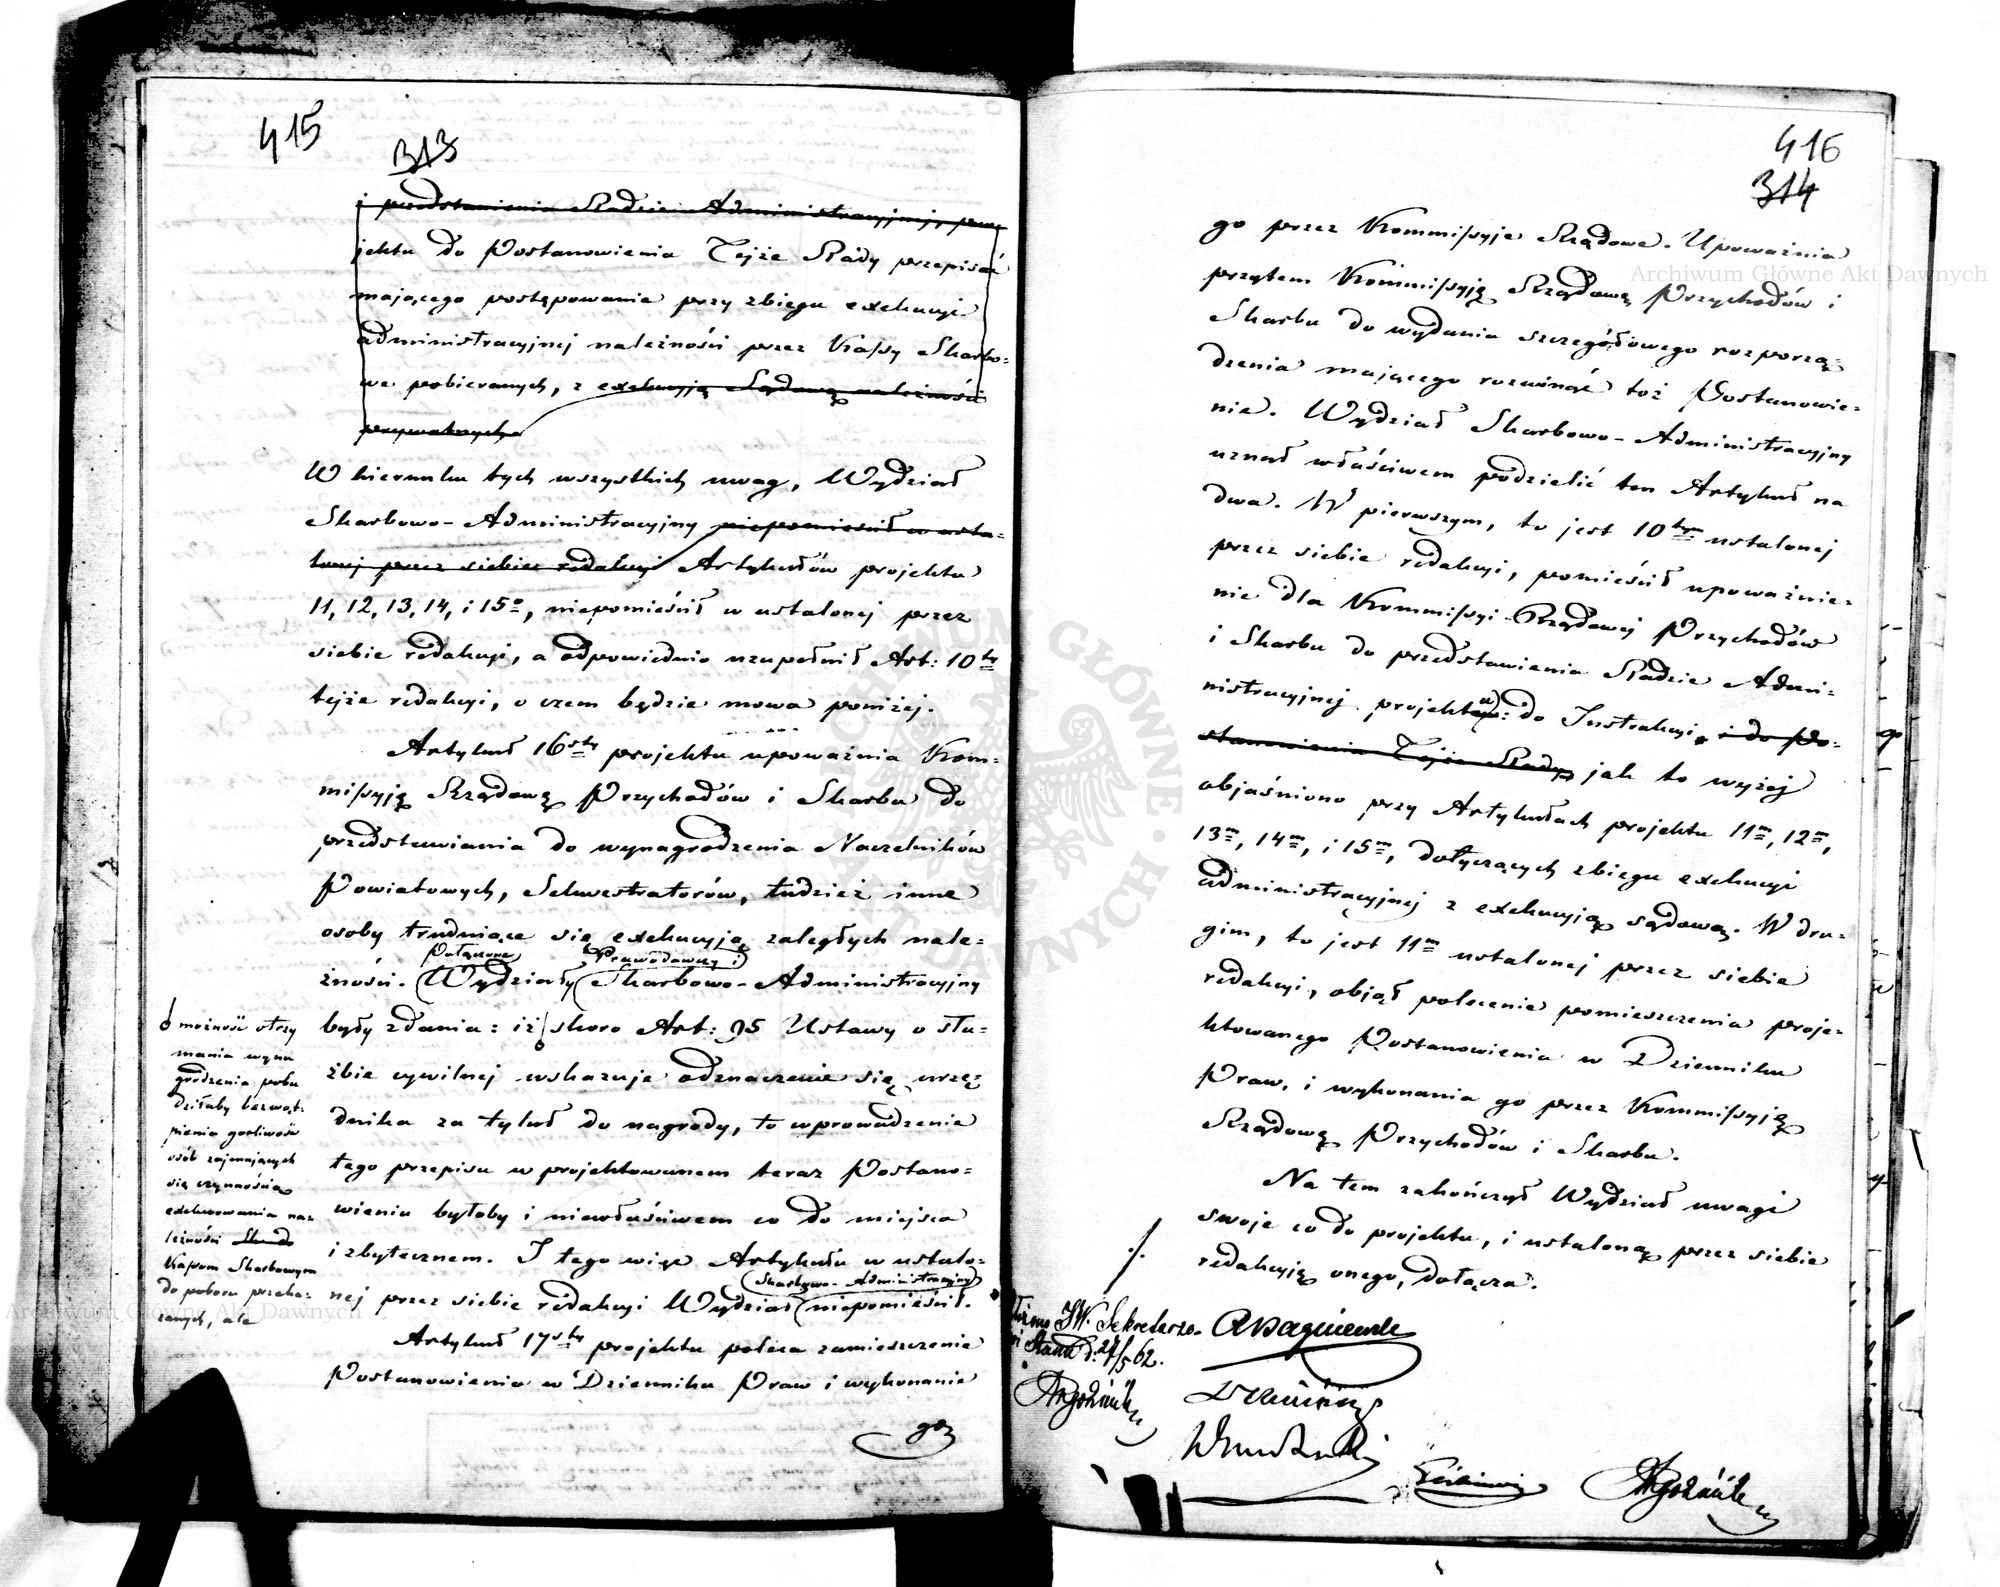 415
313
i przedstawienia Radzie Administracyjnej, pro=
jektu do Postanowienia Tejże Rady przepisać
mającego postępowanie przy zbiegu exekucyi
administracyjnej należności przez Kassy Skarbo=
we pobieranych, z exekucyją Sądową należności
prywatnych.
W kierunku tych wszystkich uwag, Wydział
Skarbowo-Administracyjny niepomieścił w usta=
lonej przez siebie redakcyi Artykułów projektu
11, 12, 13, 14, i 15º, niepomieścił w ustalonej przez
siebie redakcyi, a odpowiednio uzupełnił Art: 10ty
tejże redakcyi, o czem będzie mowa poniżej.
Artykuł 16sty projektu upoważnia Kom=
missyją Rządową Przychodów i Skarbu do
przedstawiania do wynagrodzenia Naczelników
Powiatowych, Sekwestratorów, tudzież inne
osoby trudniące się exekucyją zaległych nale=
Połączone Prawodawczy i
żności. Wydziały Skarbowo-Administracyjny
były zdania: iż skoro Art: 95 Ustawy o słu=
żbie cywilnej wskazuje odznaczenie się urzę=
dnika za tytuł do nagrody, to wprowadzenie
tego przepisu w projektowanem teraz Postano=
wieniu byłoby i niewłaściwem co do miejsca
i zbytecznem. I tego więc Artykułu w ustalo=
Skarbowo-Administracyjny
nej przez siebie redakcyi Wydział niepomieścił.
Artykuł 17sty projektu poleca zamieszczenie
Postanowienia w Dzienniku Praw i wykonanie
go
możność otrzy
mania wyna
grodzenia pobu
dziłaby bezwąt=
pienia gorliwość
osób zajmujących
się czynnością
exekwowania na=
leżności
Kassom Skarbowym
do poboru przeka=
zanych, ale
416
314
go przez Kommissyje Rządowe. Upoważnia
przytem Kommissyją Rządową Przychodów i
Skarbu do wydania szczegółowego rozporzą=
dzenia mającego rozwinąć toż Postanowie=
nie. Wydział Skarbowo-Administracyjny
uznał właściwem podzielić ten Artykuł na
dwa. W pierwszym, to jest 10tym ustalonej
przez siebie redakcyi, pomieścił upoważnie=
nie dla Kommissyi Rządowej Przychodów
i Skarbu do przedstawienia Radzie Admi=
nistracyjnej projektu do Instrukcyi, i do Po=
stanowienia Tejże Rady, jak to wyżej
objaśniono przy Artykułach projektu 11m, 12m,
13m, 14m, i 15m, dotyczących zbiegu exekucyi
administracyjnej z exekucyją sądową. W dru=
gim, to jest 11m ustalonej przez siebie
redakcyi, objął polecenie pomieszczenia proje=
ktowanego Postanowienia w Dzienniku
Praw, i wykonania go przez Kommissyją
Rządową Przychodów i Skarbu.
Na tem zakończył Wydział uwagi
swoje co do projektu, i ustaloną przez siebie
redakcyją onego, dołącza.
JW. Sekretarzo-
Stanu d. 27/5 62.
Archiwum Główne Akt Dawnych
Archiwum Główne Akt Dawnych
ARCHIWUM GŁÓWNE AKT DAWNYCH